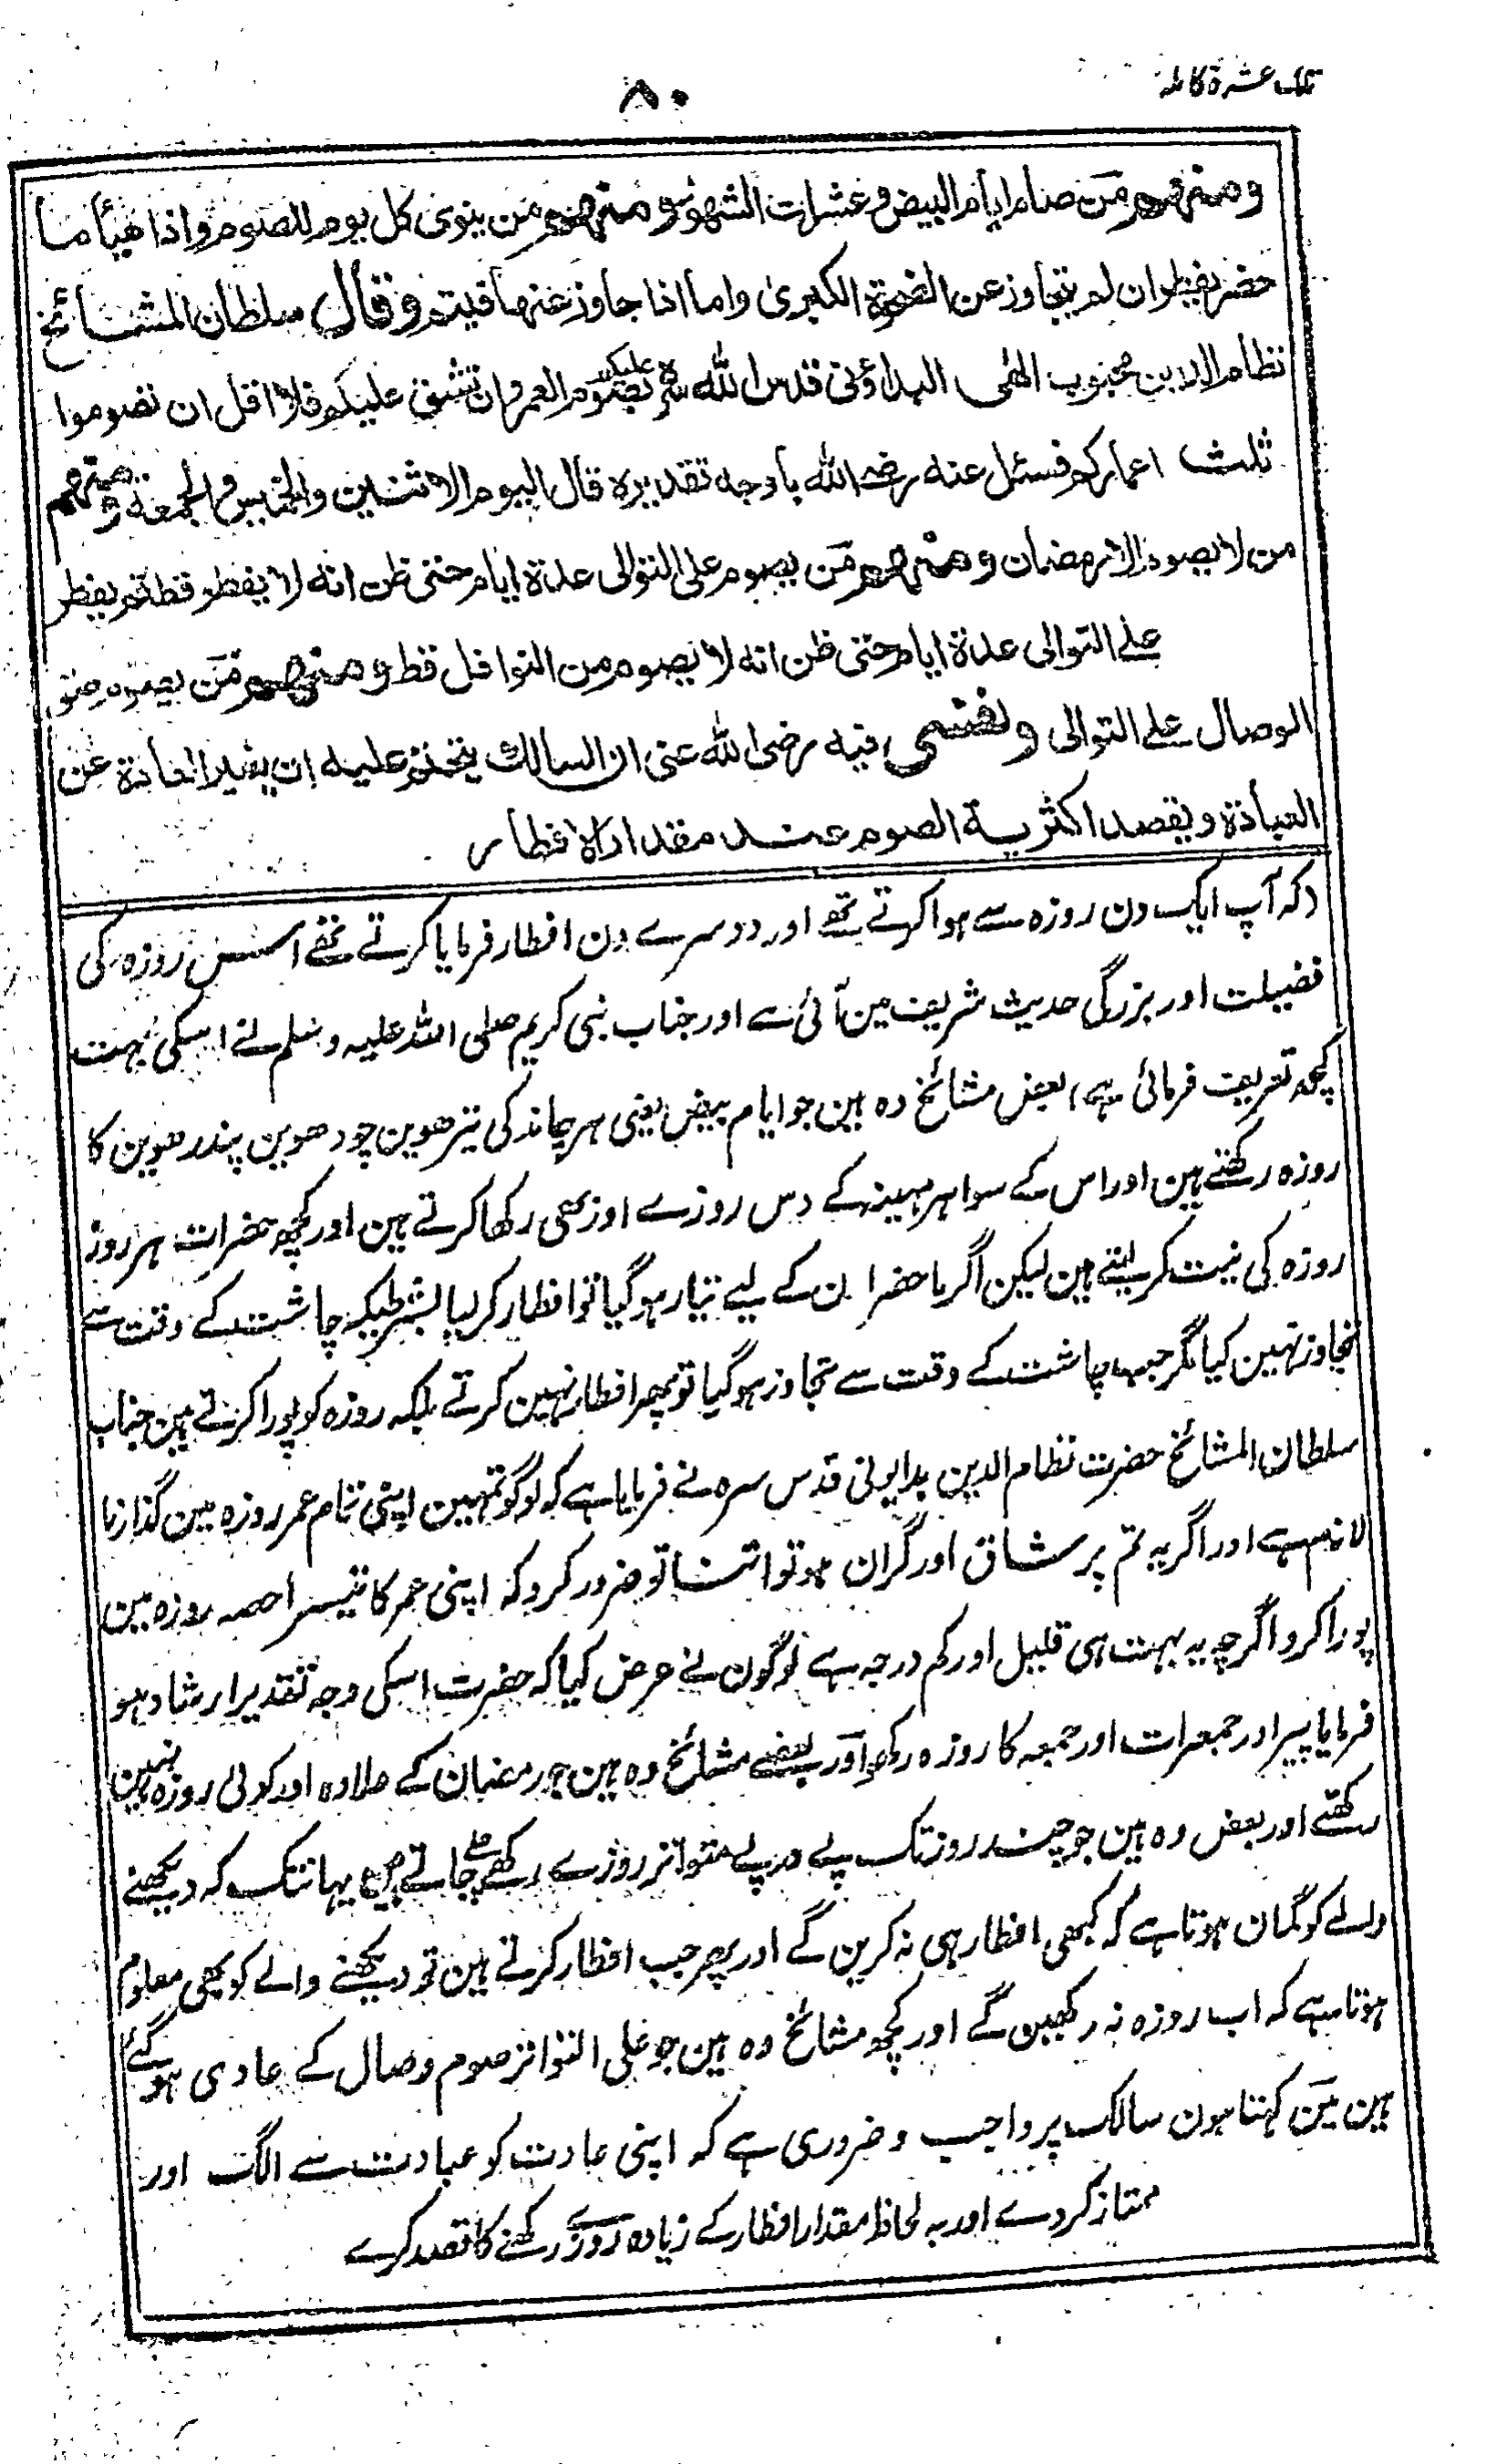 تلک عشرة کاملہ
۸۰
ومنهم من صام ایام البیض وعشرات الشهور ومنهم من ینوی کل یوم للصوم واذا هیأ ما
حضر یفطر ان لم یتجاوز عن الضحوة الکبریٰ واما اذا جاوز عنها فیتم وقال سلطان المشائخ
نظام الدین محبوب الٰهی البداؤنی قدس الله سره علیکم بصوم العمر وان تشق علیکم فلا اقل ان تصوموا
ثلث اعمارکم فسئل عنه رضی الله باوجه تقدیره قال الیوم الاثنین والخمیس والجمعة ومنهم
من لا یصوم الا رمضان ومنهم من یصوم علی التوالی عدة ایام حتی ظن انه لا یفطر قط ثم یفطر
علے التوالی عدة ایام حتی ظن انه لا یصوم من النوافل قط ومنهم من یصوم صوم
الوصال علے التوالی ونفسی فیه رضی الله عنی ان السالک یتحتم علیه ان یمیز العادة عن
العبادة ویقصد اکثریة الصوم عند مقدار الافطار
(کہ آپ ایک دن روزہ سے ہوا کرتے تھے اور دوسرے دن افطار فرمایا کرتے تھے اسس روزہ کی
فضیلت اور بزرگی حدیث شریف مین آئی ہے اور جناب نبی کریم صلی اللہ علیہ وسلم نے اسکی بہت
کچھ تعریف فرمائی ہے، بعض مشائخ وہ ہین جو ایام بیض یعنی ہر چاند کی تیرھوین چودھوین پندرھوین کا
روزہ رکھتے ہین اور اس کے سوا ہر مہینہ کے دس روزے اور بھی رکھا کرتے ہین اور کچھ حضرات ہر روز
روزہ کی نیت کر لیتے ہین لیکن اگر ماحضر ان کے لیے تیار ہو گیا تو افطار کر لیا بشرطیکہ چاشت کے وقت سے
تجاوز نہین کیا مگر جب چاشت کے وقت سے تجاوز ہو گیا تو پھر افطار نہین کرتے بلکہ روزہ کو پورا کرتے ہین جناب
سلطان المشائخ حضرت نظام الدین بدایونی قدس سرہ نے فرمایا ہے کہ لوگو تمہین اپنی تمام عمر روزہ مین گذارنا
لازم ہے اور اگر یہ تم پر شاق اور گران ہو تو اتنا تو ضرور کرو کہ اپنی عمر کا تیسرا حصہ روزہ مین
پورا کرو اگرچہ یہ بہت ہی قلیل اور کم درجہ ہے لوگون نے عرض کیا کہ حضرت اسکی وجہ تقدیر ارشاد ہو
فرمایا پیر اور جمعرات اور جمعہ کا روزہ رکھو اور بعضے مشائخ وہ ہین جو رمضان کے علاوہ اور کوئی روزہ نہین
رکھتے اور بعض وہ ہین جو چند روز تک پے در پے متواتر روزے رکھے چلے جاتے ہین یہانتک کہ دیکھنے
والے کو گمان ہوتا ہے کہ کبھی افطار ہی نہ کرین گے اور پھر جب افطار کرتے ہین تو دیکھنے والے کو یہی معلوم
ہوتا ہے کہ اب روزہ نہ رکھین گے اور کچھ مشائخ وہ ہین جو علی التواتر صوم وصال کے عادی ہو گئے
ہین مین کہتا ہون سالک پر واجب و ضروری ہے کہ اپنی عادت کو عبادت سے الگ اور
ممتاز کر دے اور بہ لحاظ مقدار افطار کے زیادہ روزے رکھنے کا قصد کرے